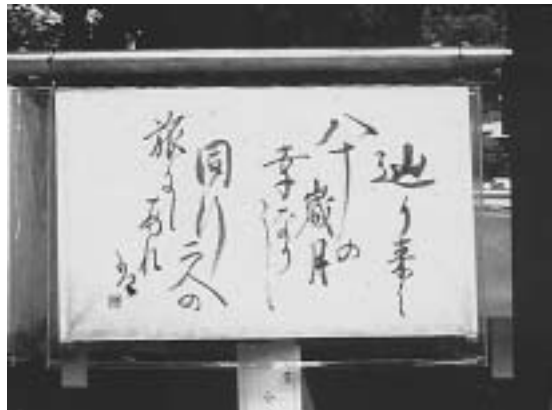 辿り来し
八十の
歳月
幸なりし
同行二人の
旅にし